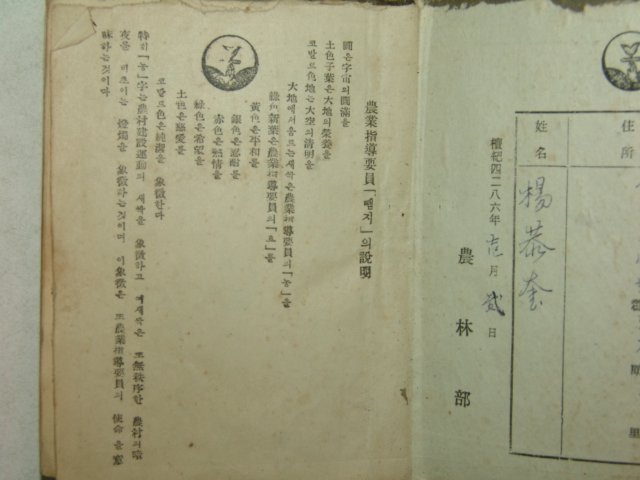 住所
里
姓名
楊恭奎
檀紀四二八六年 月 貳日
農林部
農業指導要員「뺏지」의 說明
圓은 宇宙의 圓滿을
土色子葉은 大地의 榮養을
코발트色地는 大空의 淸明을
大地에서 움트는 새싹은 農業指導要員의 「농」을
綠色新葉은 農業指導要員의 「ㅛ」를
黃色은 平和를
銀色은 忍耐를
赤色은 熱情을
綠色은 希望을
土色은 慈愛를
코발트色은 純潔을 象徵한다
特히 「농」字는 農村建設運動의 새싹을 象徵하고 이새싹은 또 無秩序한 農村의 暗
夜를 비쵸이는 燈燭을 象徵하는것이며 이象徵은 또 農業指導要員의 使命을 意
味하는것이다